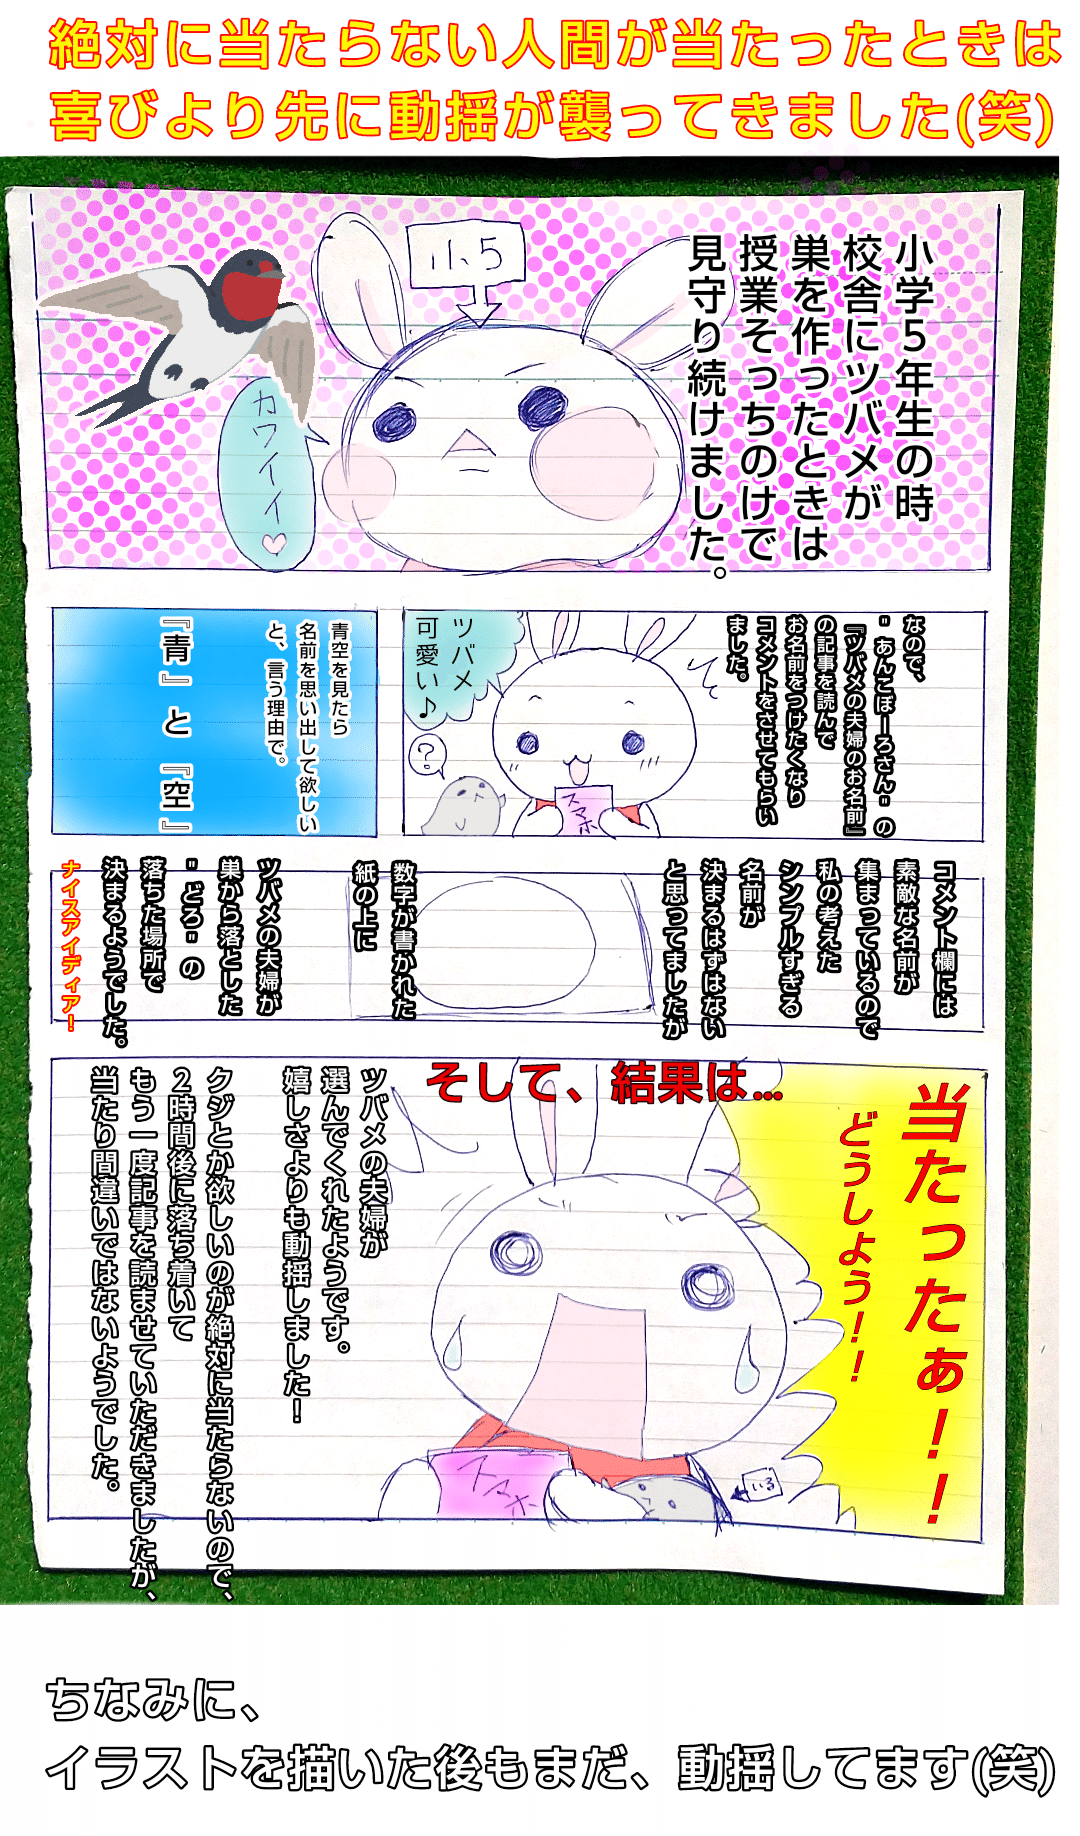 絶対に当たらない人間が当たったときは
喜びより先に動揺が襲ってきました(笑)
小学５年生の時
校舎にツバメが
巣を作ったときは
授業そっちのけで
見守り続けました。
小、5
カワイイ♡
なので、
"あんこぼーろさん"の
『ツバメの夫婦のお名前』
の記事を読んで
お名前をつけたくなり
コメントをさせてもらい
ました。
ツバメ
可愛い♪
?
スマホ
青空を見たら
名前を思い出して欲しい
と、言う理由で。
『青』と『空』
コメント欄には
素敵な名前が
集まっているので
私の考えた
シンプルすぎる
名前が
決まるはずはない
と思ってましたが
数字が書かれた
紙の上に
ツバメの夫婦が
巣から落とした
"どろ"の
落ちた場所で
決まるようでした。
ナイスアイディア！
そして、結果は...
当たったぁ！！
どうしよう！！
ツバメの夫婦が
選んでくれたようです。
嬉しさよりも動揺しました！
クジとか欲しいのが絶対に当たらないので、
２時間後に落ち着いて
もう一度記事を読ませていただきましたが、
当たり間違いではないようでした。
スマホ
いる
ちなみに、
イラストを描いた後もまだ、動揺してます(笑)